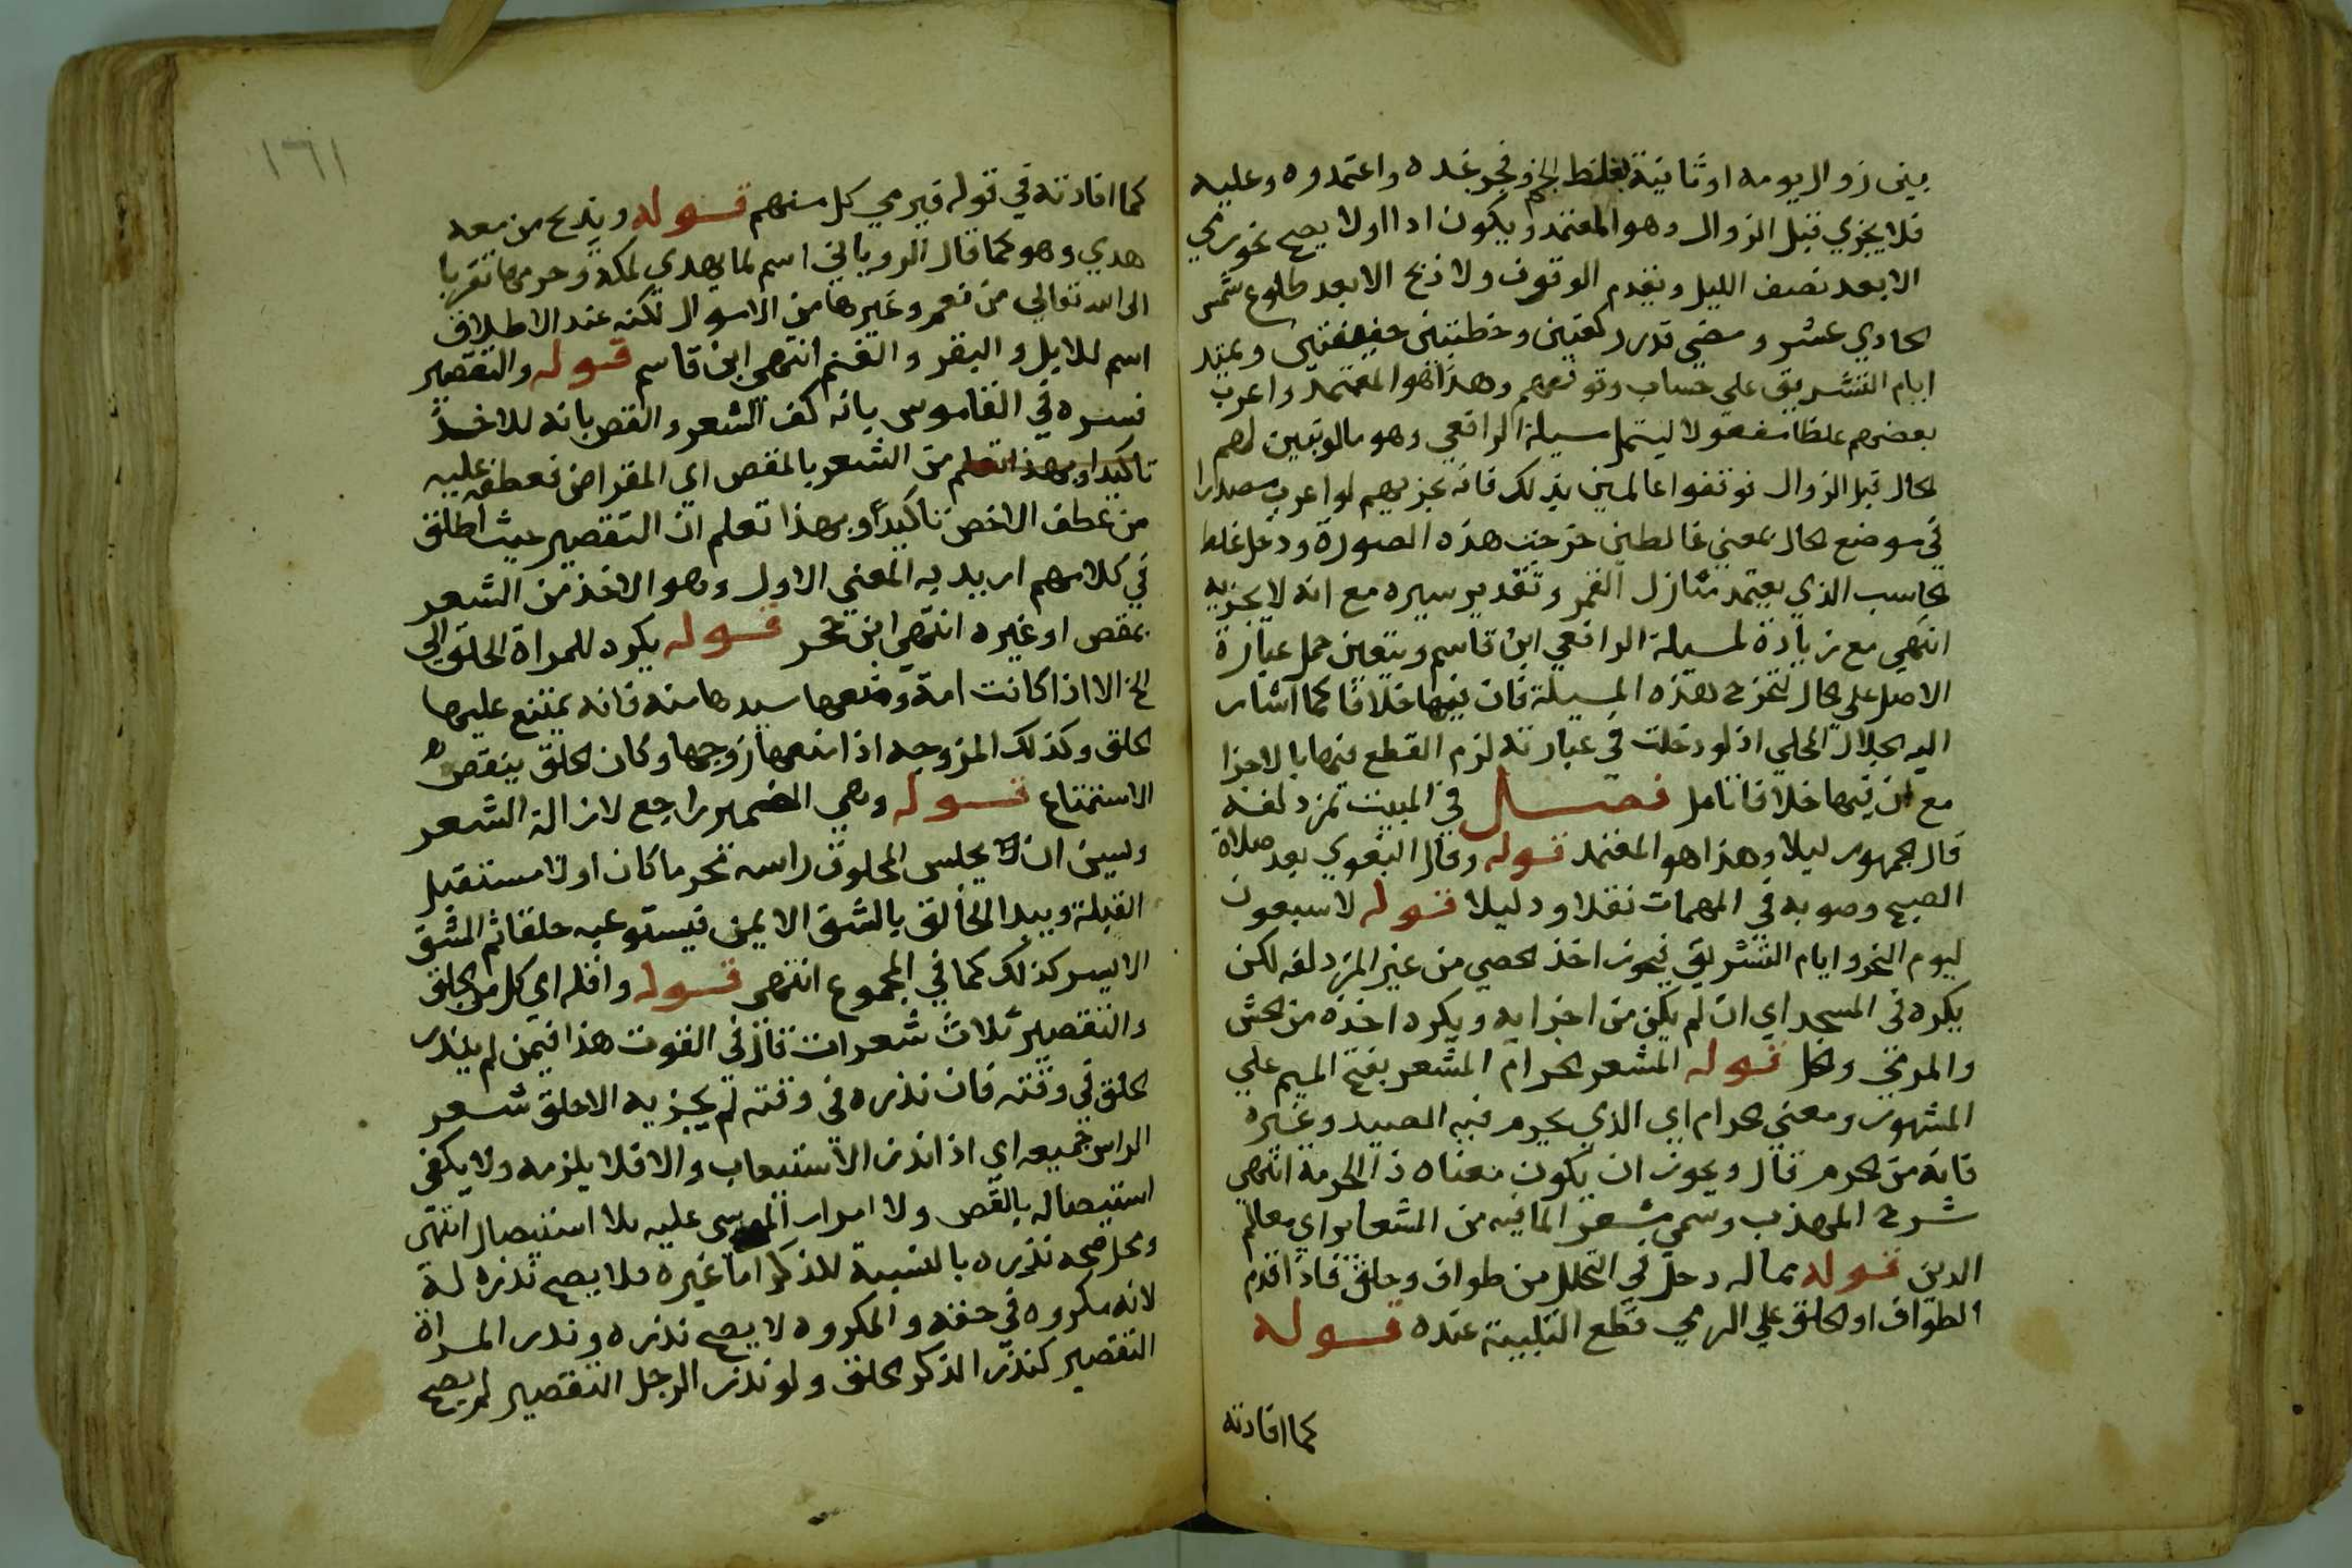 بين زوال يومه او ثانية بغلط الخ وفجر غده واعتمدوه وعليه
فلا يجزي قبل الزوال وهو المعتمد ويكون ادا اولا يصح نحو رمي
الا بعد نصف الليل وتقدم الوقوف ولا ذبح الا بعد طلوع شمس
الحادي عشر ومضي قدر ركعتين وخطبتين خفيفتين ويمتد
ايام التشريق علي حساب وقوفهم وهذا هو المعتمد واعرب
بعضهم غلطا مفعولا ليشمل مسيلة الرافعي وهو ما لو تبين لهم
الحال قبل الزوال فوقفوا عالمين بذلك فانه يجزيهم لو اعرب مصدرا
في موضع الحال بمعني غالطين خرجت هذه الصورة ودخل غلط
الحاسب الذي يعتمد منازل القمر وتقدير سيره مع انه لا يجزيه
انتهي مع زيادة لمسيلة الرافعي ابن قاسم ويتعين حمل عبارة
الاصل علي الحال لتخرج هذه المسيلة فان فيها خلافا كما اشار
اليه الجلال المحلي اذ لو دخلت في عبارته لزم القطع فيها بالاجزا
مع ان فيها خلافا تامل فصل في المبيت بمزدلفة
قال الجمهور ليلا وهذا هو المعتمد قوله وقال البغوي بعد صلاة
الصبح وصوبه في المهمات نقلا ودليلا قوله لا سبعون
ليوم النحر وايام التشريق فيجوز اخذ الحصي من غير المزدلفه لكن
يكره في المسجد اي ان لم يكن من اجزايه ويكره اخذه من الحش
والمرمي والحل قوله المشعر الحرام المشعر بفتح الميم علي
المشهور ومعني الحرام اي الذي يحرم فيه الصيد وغيره
فانه من الحرم قال ويجوز ان يكون معناه ذا الحرمة انتهي
شرح المهذب وسمي مشعرا لما فيه من الشعاير اي معالم
الدين قوله مما له دخل في التحلل من طواف وحلق فاذا قدم
الطواف او الحلق علي الرمي قطع التلبية عنده قوله
كما افادته
١٦١
كما افادته في قوله فيرمي كل منهم قوله ويذبح من معه
هدي وهو كما قال الروياني اسم لما يهدي لمكة وحرمها تقربا
الى الله تعالي من نعم وغيرها من الاموال لكنه عند الاطلاق
اسم للابل والبقر والغنم انتهي ابن قاسم قوله والتقصير
فسره في القاموس بانه كف الشعر والقص بانه للاخذ
تاكيدا وبهذا تعلم من الشعر بالمقص اي المقراض فعطفه عليه
من عطف الاخص تاكيدا وبهذا تعلم ان التقصير حيث اطلق
في كلامهم اريد به المعني الاول وهو الاخذ من الشعر
بمقص او غيره انتهي ابن حجر قوله يكره للمراة الحلق الي
الخ الا اذا كانت امة ومنعها سيدها منه فانه يمتنع عليها
الحلق وكذلك المزوجه اذا منعها زوجها وكان الحلق ينقص
الاستمتاع قوله وهي الضمير راجع لازالة الشعر
وليس ان يجلس المحلوق راسه محرما كان اولا مستقبل
القبلة ويبدا الحالق بالشق الايمن فيستوعبه حلقا ثم الشق
الايسر كذلك كما في المجموع انتهي قوله واقله اي كل من الحلق
والتقصير ثلاث شعرات قال في القوت هذا فيمن لم ينذر
الحلق في وقته فان نذره في وقته لم يجزيه الا حلق شعر
الراس جميعه اي اذا نذر الاستيعاب والا فلا يلزمه ولا يكفي
استيصاله بالقص ولا امرار الموسي عليه بلا استيصال انتهى
ومحل صحه نذره بالنسبة للذكر اما غيره فلا يصح نذره له
لانه مكروه في حقه والمكروه لا يصح نذره ونذر المراة
التقصير كنذر الذكر الحلق ولو نذر الرجل التقصير لم يصح